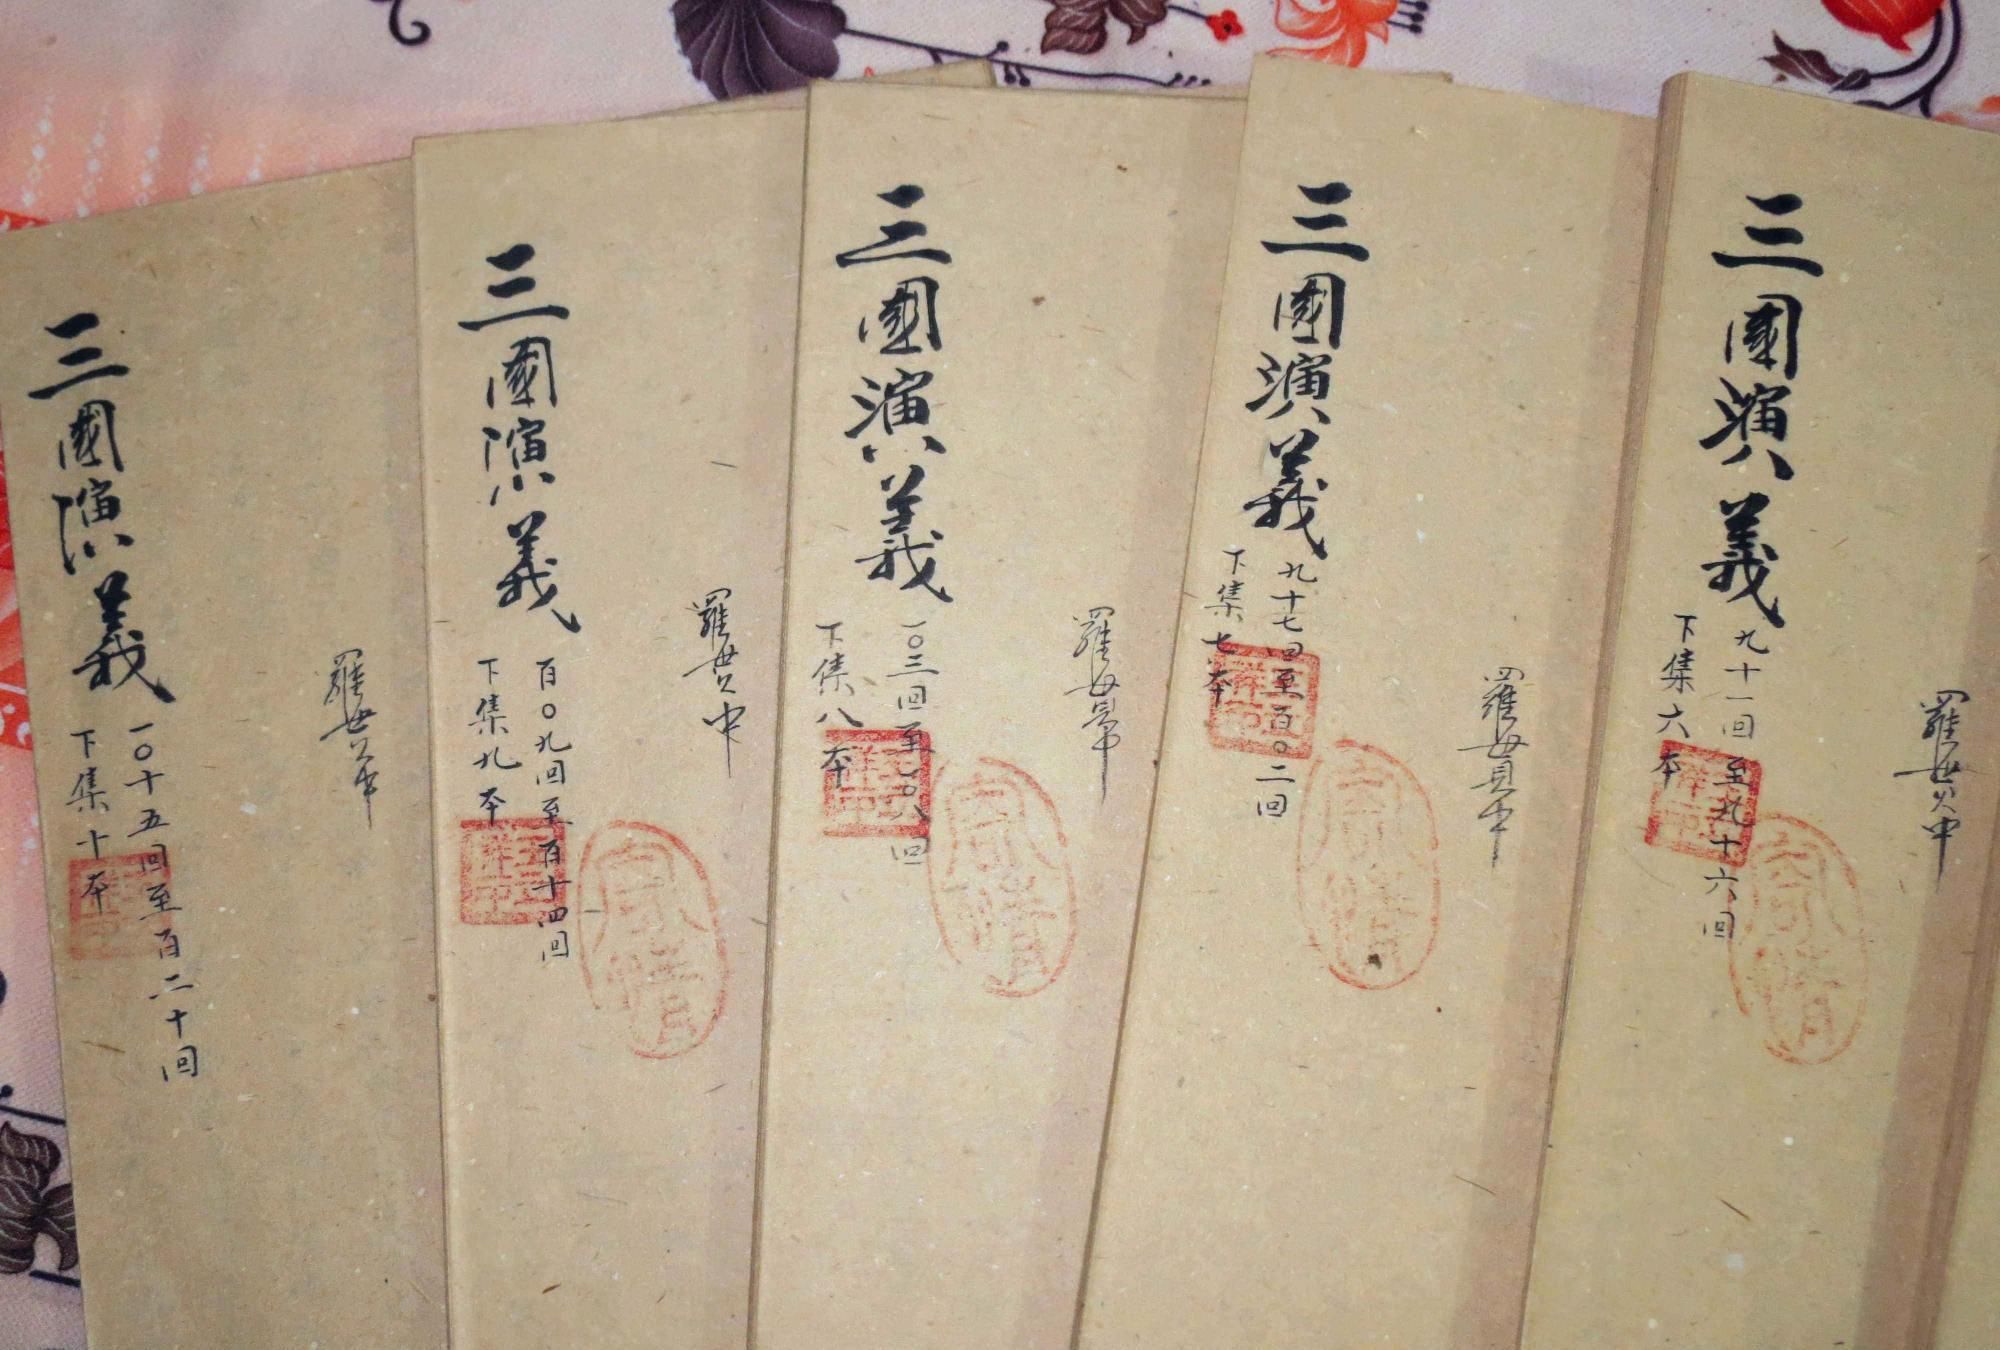 羅貫中
三國演義
九十一回至九十六回
下集六本
羅貫中
三國演義
九十七回至百〇二回
下集七本
羅貫中
三國演義
一〇三回至一〇八回
下集八本
羅貫中
三國演義
百〇九回至百十四回
下集九本
羅貫中
三國演義
一〇十五回至百二十回
下集十本